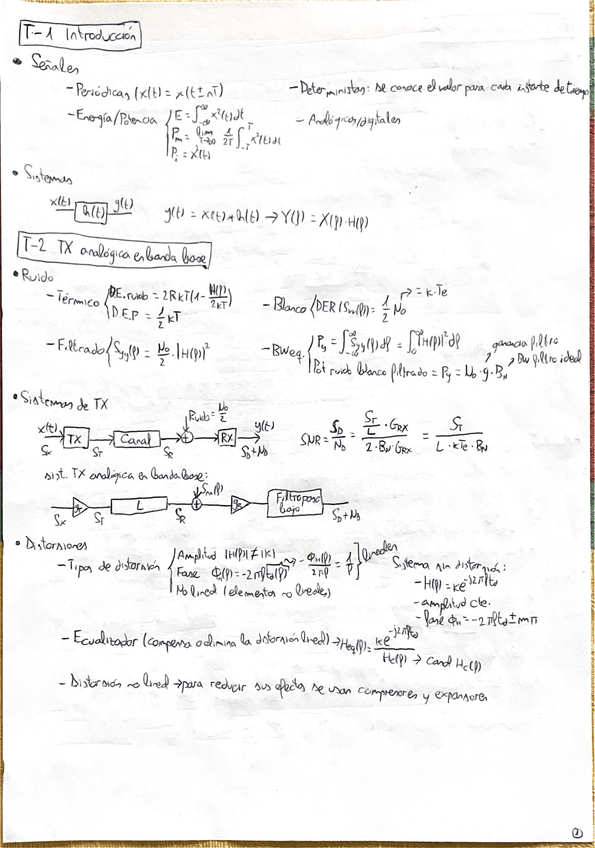 T-1 Introducción
• Señales
- Periódicas (x(t) = x(t ± nT)
- Deterministas: se conoce el valor para cada instante de tiempo
- Energía/Potencia { E = ∫_{-∞}^{∞} x²(t)dt
P_m = lim_{T→∞} 1/2T ∫_{-T}^{T} x²(t)dt
P_i = x²(t)
- Analógicas/digitales
• Sistemas
x(t) h(t) y(t) y(t) = x(t) * h(t) → Y(f) = X(f)·H(f)
T-2 TX analógica en banda base
• Ruido
- Térmico { D.E. ruido = 2RkT(1 - |H(f)|/2kT)
D.E.P = 1/2 kT
- Blanco { DER (S_n(f)) = 1/2 N₀ → = k·Te
- Filtrado { S_yy(f) = N₀/2 · |H(f)|²
- BWeq. { P_y = ∫_{-∞}^{∞} S_yy(f)df = ∫_0^∞ |H(f)|² df
Pot ruido blanco filtrado = P_y = N₀ · g · B_N
ganancia filtro
BW filtro ideal
• Sistemas de TX
x(t) TX Canal Ruido = N₀/2 RX y(t)
S_x S_T S_R S_D+N_D
SNR = S_D/N_D = (S_T/L · G_RX)/(2·B_N G_RX) = S_T/(L·kTe·B_N)
sist. TX analógica en banda base:
S_x S_T L S_R S_n(f) g_R Filtro paso bajo S_D+N_D
• Distorsiones
- Tipos de distorsión { Amplitud |H(f)| ≠ |K|
Fase Φ_h(f) = -2πft_d(f) → -Φ_h(f)/2πf = 1/f ] lineales
No lineal (elementos no lineales)
Sistema sin distorsión:
- H(f) = Ke^{-j2πft_d}
- amplitud cte.
- fase Φ_h = -2πft_d ± mπ
- Ecualizador (compensa o elimina la distorsión lineal) → Heq(f) = Ke^{-j2πft_d}/H_c(f) → canal H_c(f)
- Distorsión no lineal → para reducir sus efectos se usan compresores y expansores
1